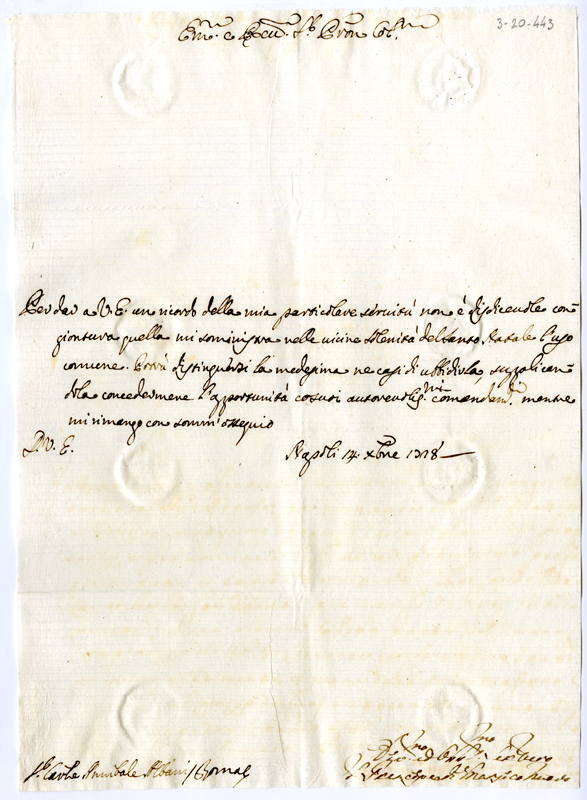 Em.e e Reu. S.r Pron Col.mo
3-20-443
Per dar a V. E. un ricordo della mia particolare servitù non è dispiceuole con=
giontura quella mi soministra nelle uicine solenità del Santo Natale l'uso
comune. Potrà distinguersi la medesima ne casi di ubbidirla, supplican=
dola concedermene l'opportunità co suoi autoreuolis.mi comandam.ti mentre
mi rimango con somm' ossequio
D. V. E.
Napoli 14. xbre 1718
S.r Car.le Annibale Albani / Roma